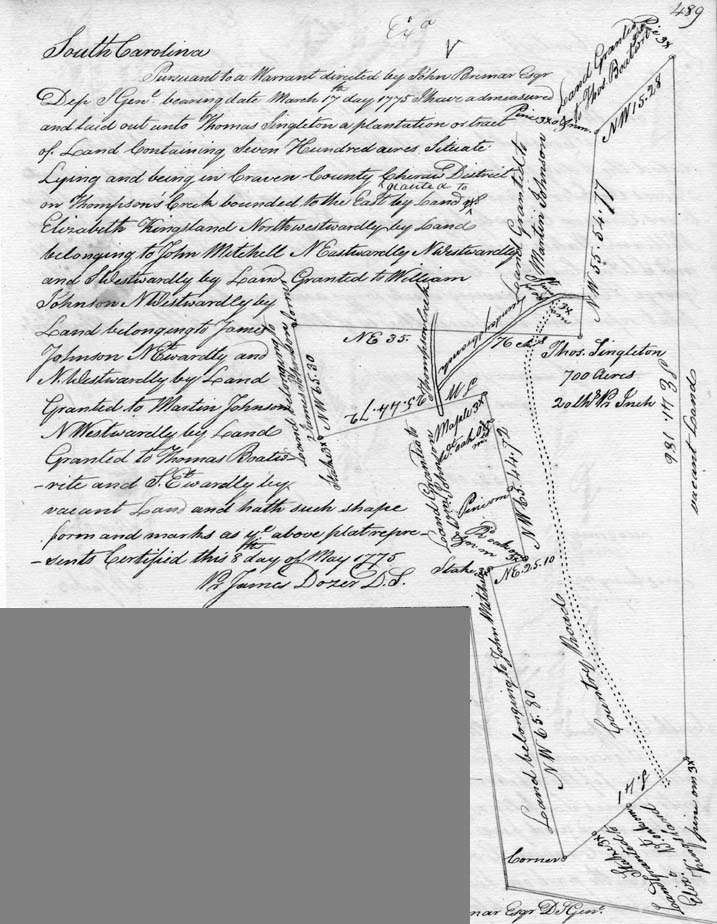 489
South Carolina
Pursuant to a Warrant directed by John Bremar Esqr
Dep S Genl bearing date March 17th day 1775 I have admeasured
and laid out unto Thomas Singleton a plantation or tract
of Land Containing Seven Hundred acres Situate
Lying and being in Craven County Cheraw District
on Thompson's Creek bounded to the East by Land granted to
Elizabeth Kingsland Northwestwardly by Land
belonging to John Mitchell N Eastwardly N Westwardly
and S Westwardly by Land Granted to William
Johnson N Westwardly by
Land belonging to James
Johnson N Etwardly and
N Westwardly by Land
Granted to Martin Johnson
N Westwardly by Land
Granted to Thomas Boat
-rite and S. Etwardly by
vacant Land and hath such shape
form and marks as ye above plat repre-
-sents Certified this 8th day of May 1775
Pr James Dozer D.S.
Land Granted
to Thos. Boat
Pine 3x
NW 15.28
Land Granted to
Martin Johnson
NW 55.54.77
NE 35.
76 chs
Thos. Singleton
700 Acres
20 Chs Pr Inch
Land belonging to
James Johnson
Corner
NW 65.30
Stake 3x
Maple 3x
Land Granted to
Pine
NW 65.44.72
Stake 3x
NE.25.10
Land belonging to John Mitchel
NW 65.80
Country Road
SE 41.186
vacant Land
Corner
Stake 3x
pine 3x
mar Esqr D S Genl